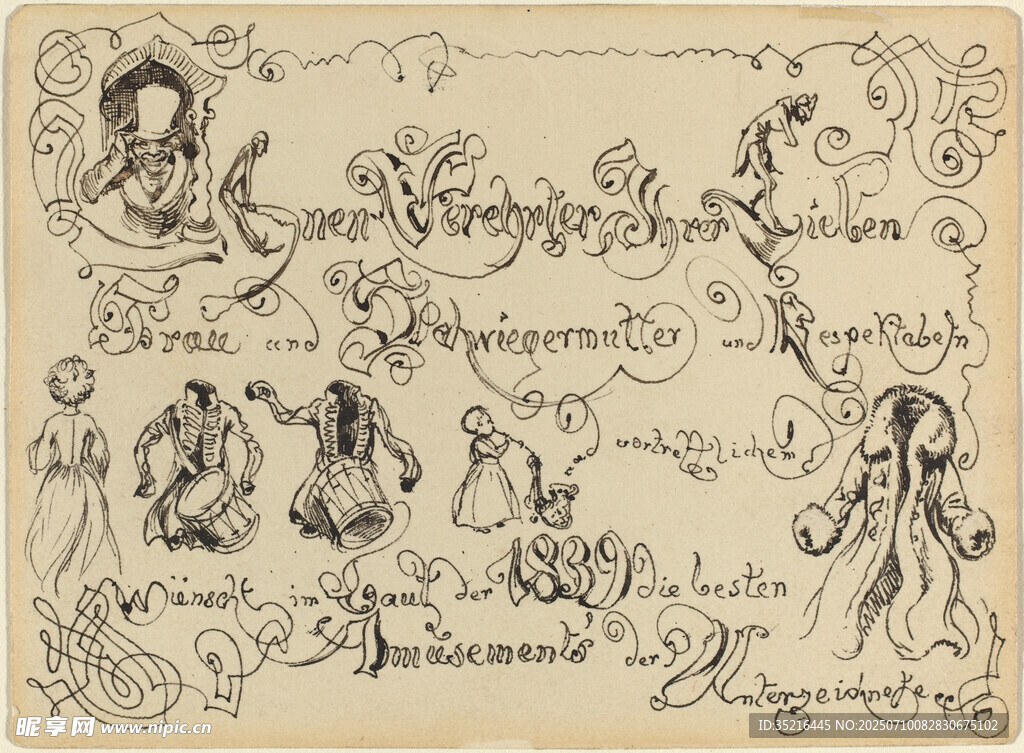 Ihnen Verehrter, Ihrer Lieben
Frau und Schwiegermutter und Respektabeln
und vortrefflichem
Wünscht im Lauf der 1839 die besten
Amüsements der Unterzeichnete
昵享网 www.nipic.cn
ID:35216445 NO:20250710082830675102